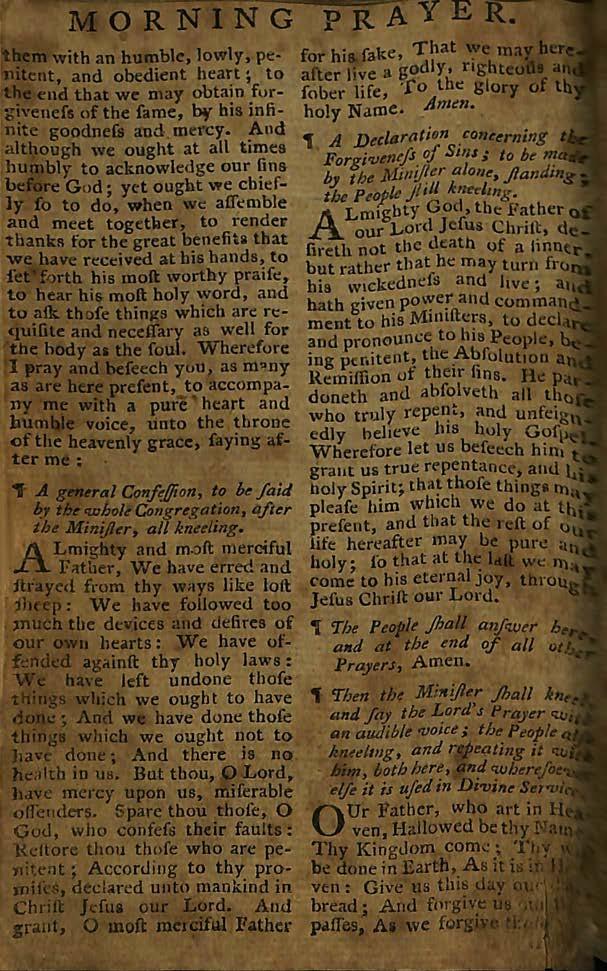 MORNING PRAYER.
them with an humble, lowly, pe-
nitent, and obedient heart; to
the end that we may obtain for-
giveneſs of the ſame, by his infi-
nite goodneſs and mercy. And
although we ought at all times
humbly to acknowledge our ſins
before God; yet ought we chief-
ly ſo to do, when we aſſemble
and meet together, to render
thanks for the great benefits that
we have received at his hands, to
ſet forth his moſt worthy praiſe,
to hear his moſt holy word, and
to aſk thoſe things which are re-
quiſite and neceſſary as well for
the body as the ſoul. Wherefore
I pray and beſeech you, as many
as are here preſent, to accompa-
ny me with a pure heart and
humble voice, unto the throne
of the heavenly grace, ſaying af-
ter me:
¶ A general Confeſſion, to be ſaid
by the whole Congregation, after
the Miniſter, all kneeling.
ALmighty and moſt merciful
Father, We have erred and
ſtrayed from thy ways like loſt
ſheep: We have followed too
much the devices and deſires of
our own hearts: We have of-
fended againſt thy holy laws:
We have left undone thoſe
things which we ought to have
done; And we have done thoſe
things which we ought not to
have done; And there is no
health in us. But thou, O Lord,
have mercy upon us, miſerable
offenders. Spare thou thoſe, O
God, who confeſs their faults:
Reſtore thou thoſe who are pe-
nitent; According to thy pro-
miſes, declared unto mankind in
Chriſt Jeſus our Lord. And
grant, O moſt merciful Father
for his ſake, That we may here-
after live a godly, righteous and
ſober life, To the glory of thy
holy Name. Amen.
¶ A Declaration concerning the
Forgiveneſs of Sins; to be made
by the Miniſter alone, ſtanding;
the People ſtill kneeling.
ALmighty God, the Father of
our Lord Jeſus Chriſt, de-
ſireth not the death of a ſinner,
but rather that he may turn from
his wickedneſs and live; and
hath given power and command-
ment to his Miniſters, to declare
and pronounce to his People, be-
ing penitent, the Abſolution and
Remiſſion of their ſins. He par-
doneth and abſolveth all thoſe
who truly repent, and unfeign-
edly believe his holy Goſpel.
Wherefore let us beſeech him to
grant us true repentance, and his
holy Spirit; that thoſe things may
pleaſe him which we do at this
preſent, and that the reſt of our
life hereafter may be pure and
holy; ſo that at the laſt we may
come to his eternal joy, through
Jeſus Chriſt our Lord.
¶ The People ſhall anſwer here,
and at the end of all other
Prayers, Amen.
¶ Then the Miniſter ſhall kneel
and ſay the Lord's Prayer with
an audible voice; the People
kneeling, and repeating it with
him, both here, and
elſe it is uſed in Divine Service
OUr Father, who art in Hea-
ven, Hallowed be thy Name
Thy Kingdom come; Thy
be done in Earth, As it is in
ven: Give us this day our
bread; And forgive us
paſſes, As we forgive